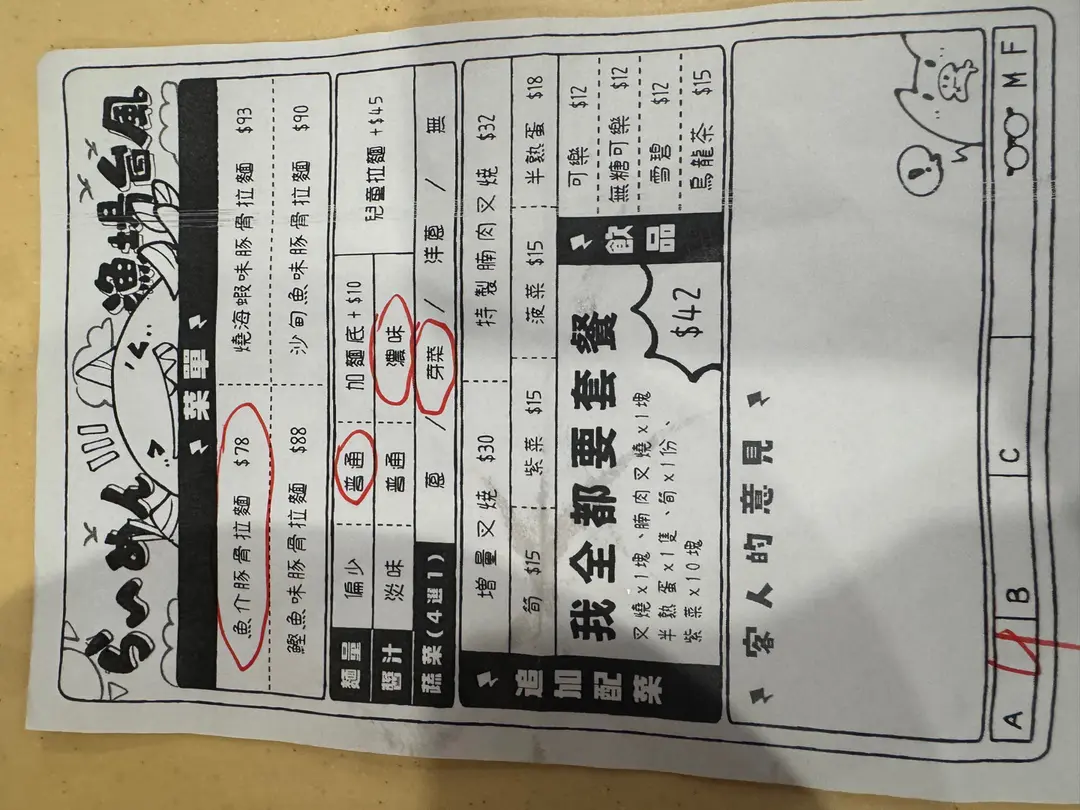 らーめん 漁場台風
菜單
魚介豚骨拉麵 $78 燒海蝦味豚骨拉麵 $93
鰹魚味豚骨拉麵 $88 沙甸魚味豚骨拉麵 $90
麵量 偏少 普通 加麵底+$10
醬汁 淡味 普通 濃味
兒童拉麵 +$45
蔬菜(4選1) 蔥 / 芽菜 / 洋蔥 / 無
追加配菜
增量叉燒 $30 特製腩肉叉燒 $32
筍 $15 紫菜 $15 菠菜 $15 半熟蛋 $18
我全都要套餐
叉燒x1塊、腩肉叉燒x1塊
半熟蛋x1隻、筍x1份、
紫菜x10塊
$42
飲品
可樂 $12
無糖可樂 $12
雪碧 $12
烏龍茶 $15
客人的意見
!
A B C M F